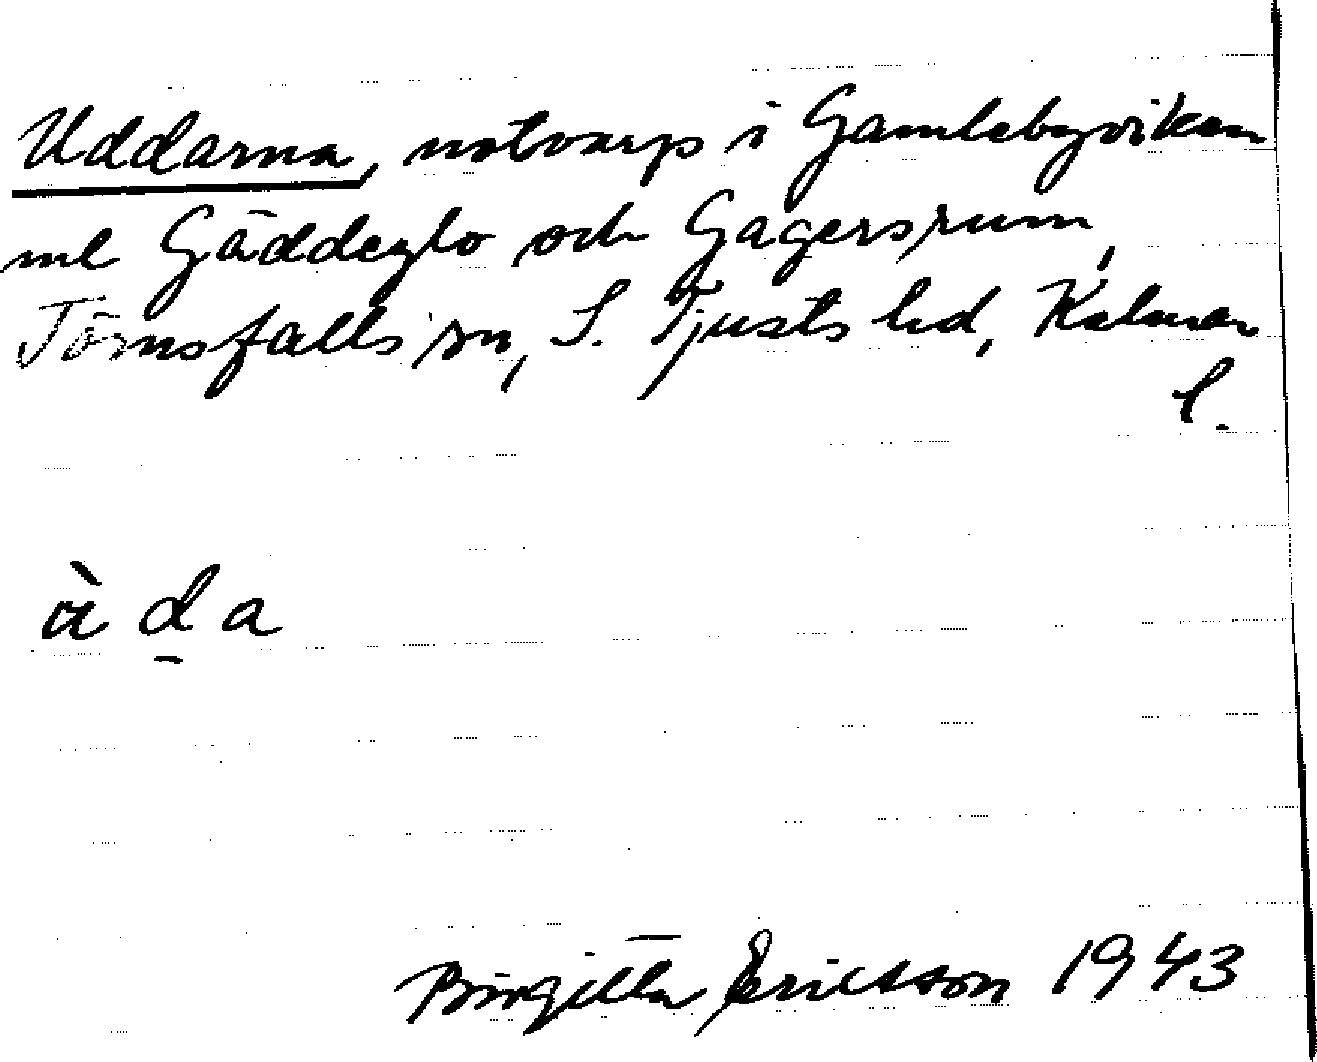 Uddarna, notvarp i Gamlebyviken
ml Gäddeglo och Gagersrum,
Törnsfalls sn, S. Tjusts hd, Kalmar
l.
ù d̲ a
Birgitta Ericsson 1943